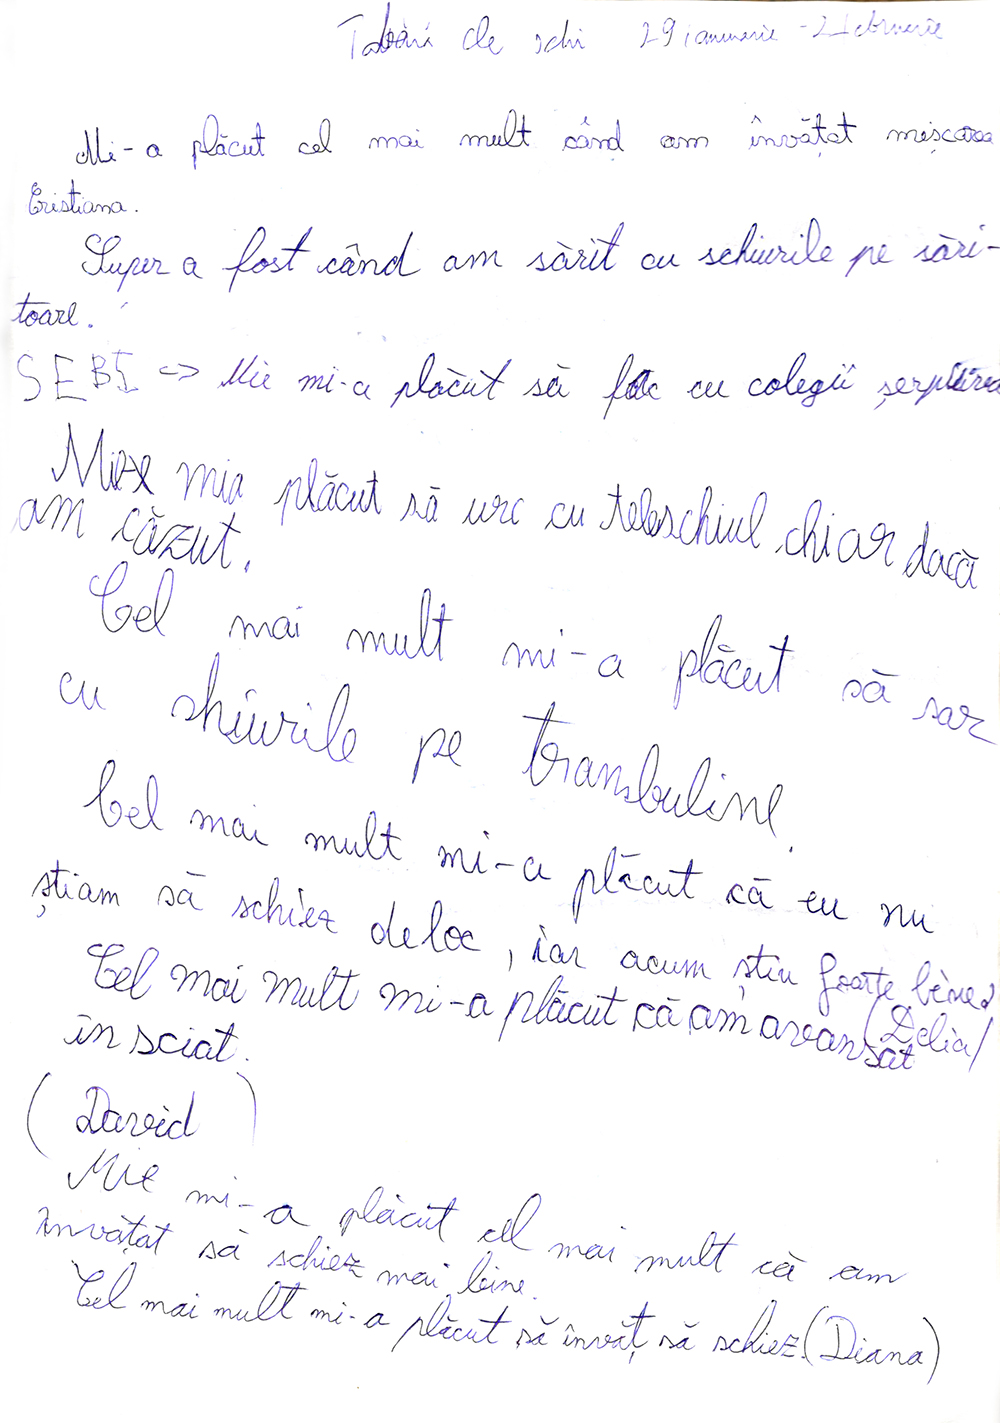 Tabără de schi 29 ianuarie - 2 februarie
Mi-a plăcut cel mai mult când am învățat mișcarea
Cristiana.
Super a fost când am sărit cu schiurile pe sări-
toare.
SEBI => Mie mi-a plăcut să fac cu colegii șerpuirea
Mie mia plăcut să urc cu teleschiul chiar dacă
am căzut.
Cel mai mult mi-a plăcut să sar
cu shiurile pe transbuline.
Cel mai mult mi-a plăcut că eu nu
știam să schiez deloc, iar acum știu foarte bine.
(Delia)
Cel mai mult mi-a plăcut că am avansat
în sciat.
(David)
Mie mi-a plăcut cel mai mult că am
învățat să schiez mai bine.
Cel mai mult mi-a plăcut să învăț să schiez. (Diana)